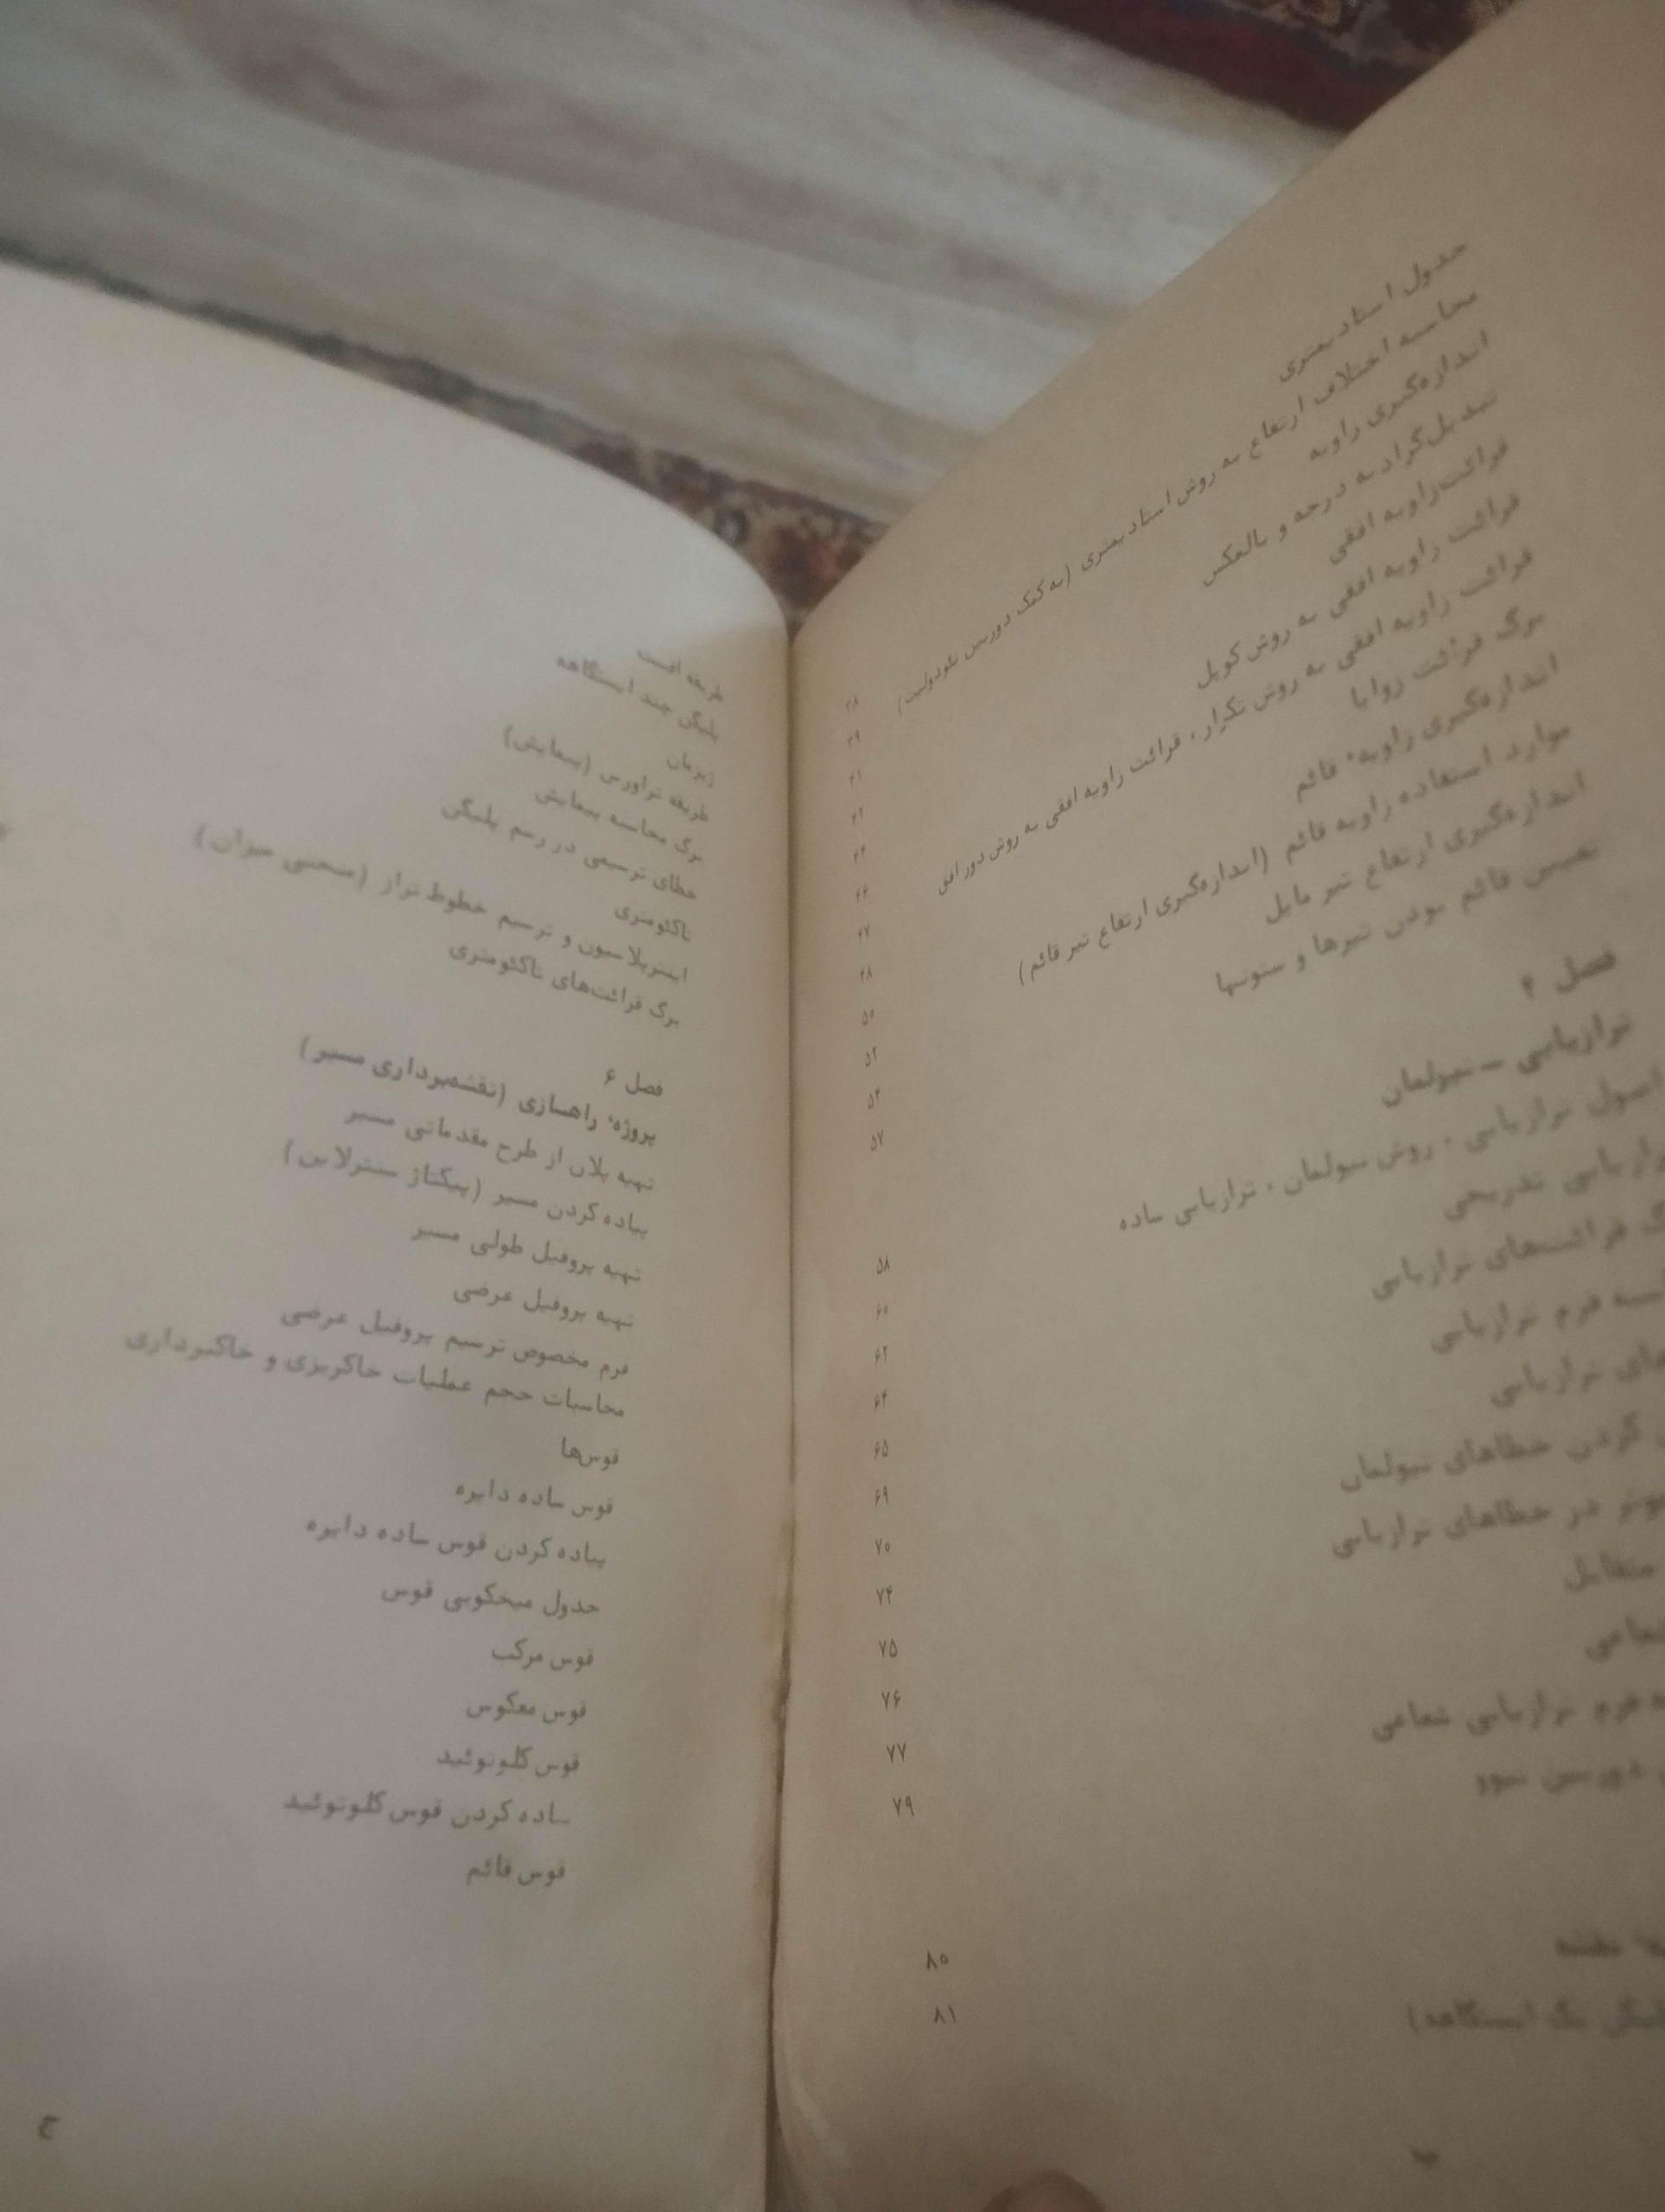 جدول استادیمتری ۳۸
محاسبه اختلاف ارتفاع به روش استادیمتری (به کمک دوربین تئودولیت) ۳۹
اندازه‌گیری زاویه ۴۱
تبدیل گراد به درجه و بالعکس ۴۲
قرائت زاویه افقی ۴۴
قرائت زاویه افقی به روش کوپل ۴۶
قرائت زاویه افقی به روش تکرار، قرائت زاویه افقی به روش دور افق ۴۷
برگ قرائت زوایا ۴۸
اندازه‌گیری زاویهٔ قائم ۵۰
موارد استفاده زاویه قائم (اندازه‌گیری ارتفاع تیر قائم) ۵۲
اندازه‌گیری ارتفاع تیر مایل ۵۴
تعیین قائم بودن تیرها و ستونها ۵۷
فصل ۴
ترازیابی – نیولمان
اصول ترازیابی، روش نیولمان، ترازیابی ساده ۵۸
ترازیابی تدریجی ۶۰
قرائت‌های ترازیابی ۶۲
فرم ترازیابی ۶۴
ترازیابی ۶۵
کردن خطاهای نیولمان ۶۹
در خطاهای ترازیابی ۷۰
متقابل ۷۴
شعاعی ۷۵
فرم ترازیابی شعاعی ۷۶
دوربین نیوو ۷۷
۷۹
نقشه ۸۰
یک ایستگاهه) ۸۱
طریقه افست
پلیگن چند ایستگاهه
ژیزمان
طریقه تراورس (پیمایش)
برگ محاسبه پیمایش
خطای ترسیمی در رسم پلیگن
تاکئومتری
اینترپلاسیون و ترسیم خطوط تراز (منحنی میزان)
برگ قرائت‌های تاکئومتری
فصل ۶
پروژهٔ راهسازی (نقشه‌برداری مسیر)
تهیه پلان از طرح مقدماتی مسیر
پیاده کردن مسیر (پیکتاژ سنترلاین)
تهیه پروفیل طولی مسیر
تهیه پروفیل عرضی
فرم مخصوص ترسیم پروفیل عرضی
محاسبات حجم عملیات خاکریزی و خاکبرداری
قوس‌ها
قوس ساده دایره
پیاده کردن قوس ساده دایره
جدول میخکوبی قوس
قوس مرکب
قوس معکوس
قوس کلوتوئید
ساده کردن قوس کلوتوئید
قوس قائم
ج